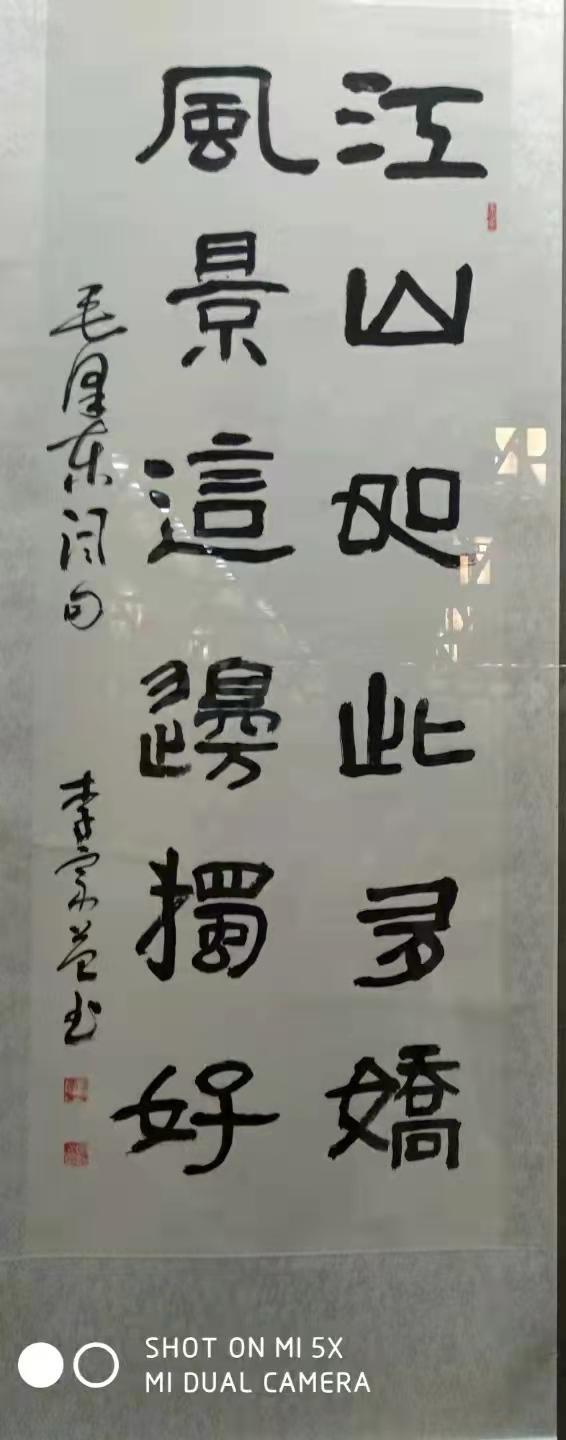 江山如此多嬌
風景這邊獨好
毛澤东词句
李家益书
SHOT ON MI 5X
MI DUAL CAMERA